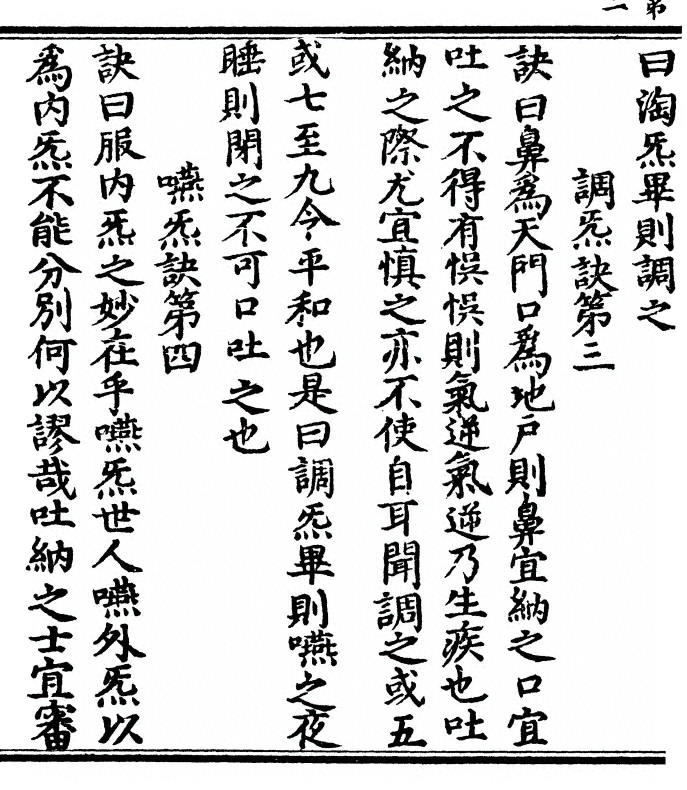 曰淘炁畢則調之
調炁訣第三
訣曰鼻爲天門口爲地戶則鼻宜納之口宜
吐之不得有悮悮則氣逆氣逆乃生疾也吐
納之際尤宜慎之亦不使自耳聞調之或五
或七至九令平和也是曰調炁畢則嚥之夜
睡則閉之不可口吐之也
嚥炁訣第四
訣曰服内炁之妙在乎嚥炁世人嚥外炁以
爲内炁不能分別何以謬哉吐納之士宜審